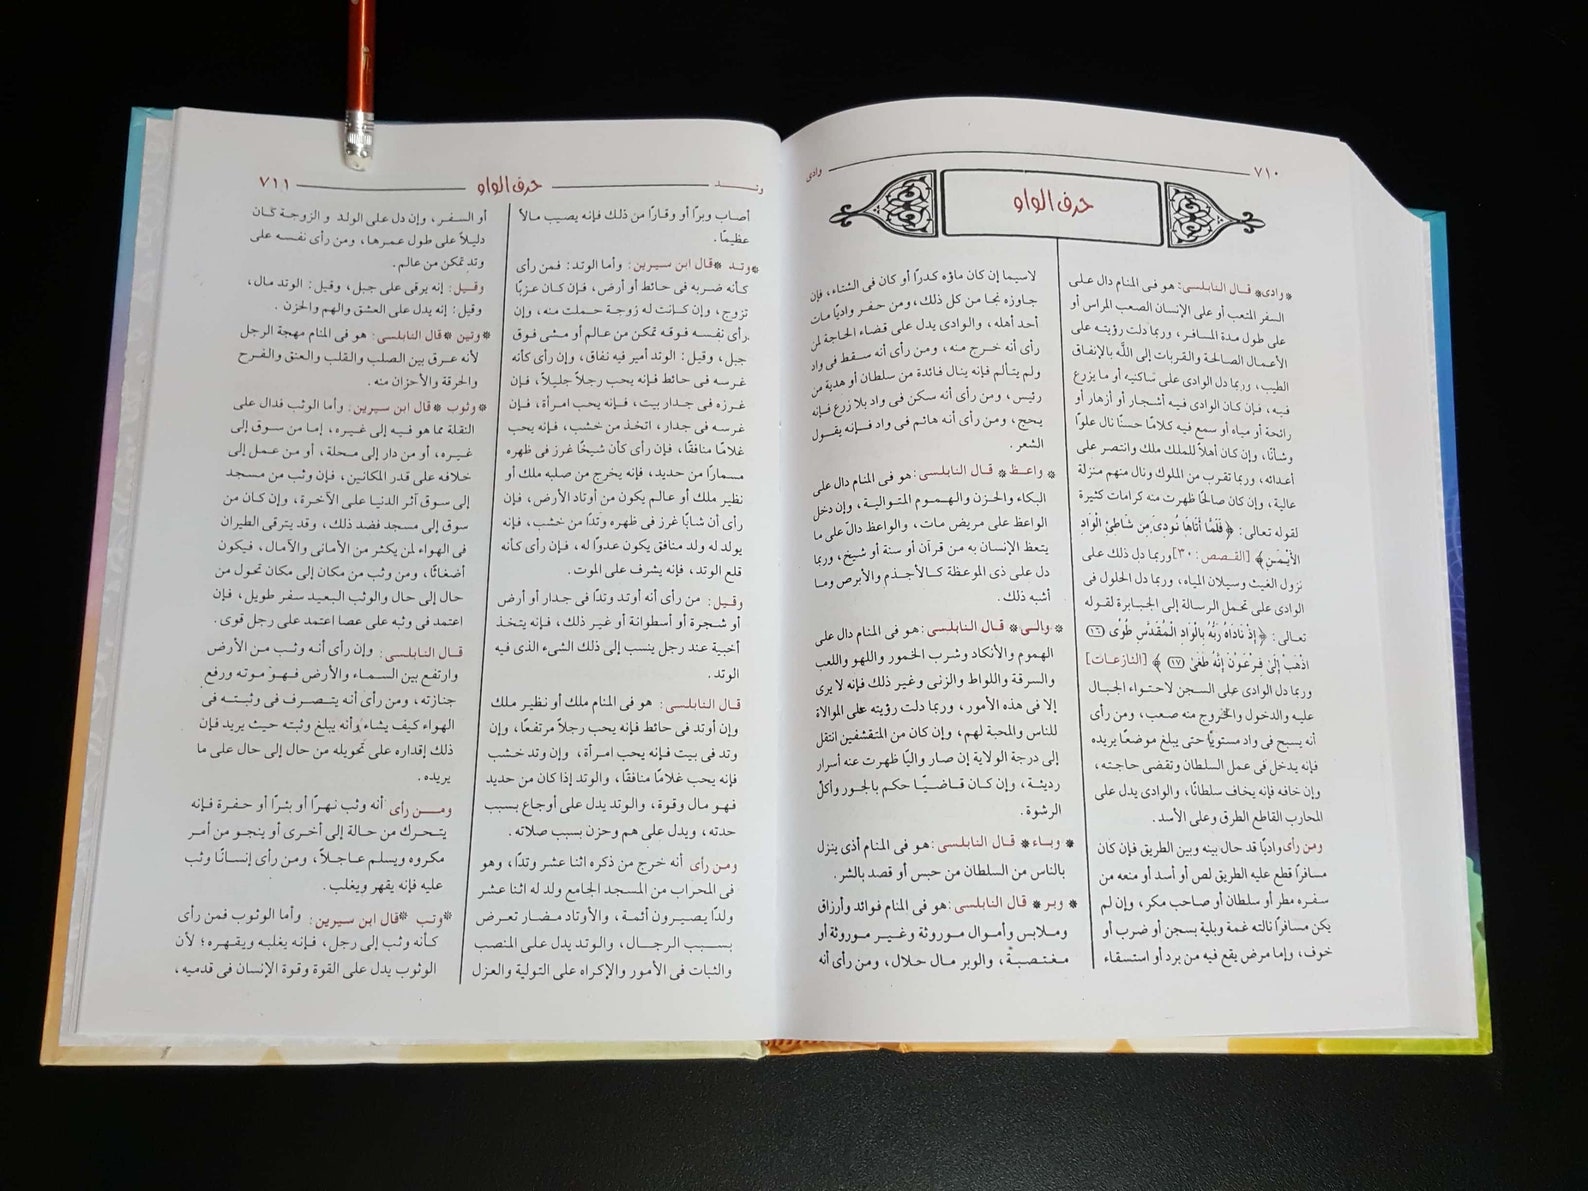 ٧١٠
وادى
حرف الواو
* وادى* قـال النابلسى: هو فى المنام دال على
السفر المتعب أو على الإنسان الصعب المراس أو
على طول مدة المسافر، وربما دلت رؤيته على
الأعمال الصالحة والقربات إلى اللَّه بالإنفاق
الطيب، وربما دل الوادى على ساكنيه أو ما يزرع
فيه، فإن كان الوادى فيه أشجار أو أزهار أو
رائحة أو مياه أو سمع فيه كلامًا حسنًا نال علوًا
وشأنًا، وإن كان أهلاً للملك ملك وانتصر على
أعدائه، وربما تقرب من الملوك ونال منهم منزلة
عالية، وإن كان صالحًا ظهرت منه كرامات كثيرة
لقوله تعالى: ﴿ فَلَمَّا أَتَاهَا نُودِىَ مِن شَاطِئِ الْوَادِ
الأَيْمَنِ﴾ [القـصص: ٣٠] وربما دل ذلك على
نزول الغيث وسيلان المياه، وربما دل الحلول فى
الوادى على تحمل الرسالة إلى الجبابرة لقوله
تعالى: ﴿ إِذْ نَادَاهُ رَبُّهُ بِالْوَادِ الْمُقَدَّسِ طُوًى ﴿١٦﴾
اذْهَبْ إِلَىٰ فِرْعَوْنَ إِنَّهُ طَغَىٰ ﴿١٧﴾ ﴾ [النازعات]
وربما دل الوادى على السجن لاحتواء الجبال
عليه والدخول والخروج منه صعب، ومن رأى
أنه يسبح فى واد مستويًا حتى يبلغ موضعًا يريده
فإنه يدخل فى عمل السلطان وتقضى حاجته،
وإن خافه فإنه يخاف سلطانًا، والوادى يدل على
المحارب القاطع الطرق وعلى الأسد.
ومن رأى واديًا قد حال بينه وبين الطريق فإن كان
مسافرًا قطع عليه الطريق لص أو أسد أو منعه من
سفره مطر أو سلطان أو صاحب مكر، وإن لم
يكن مسافرًا نالته غمة وبلية بسجن أو ضرب أو
خوف، وإما مرض يقع فيه من برد أو استسقاء
لاسيما إن كان ماؤه كدرًا أو كان فى الشتاء، فإن
جاوزه نجا من كل ذلك، ومن حـفر واديًا مات
أحد أهله، والوادى يدل على قضاء الحاجة لمن
رأى أنه خرج منه، ومن رأى أنه سقط فى واد
ولم يتألم فإنه ينال فائدة من سلطان أو هدية من
رئيس، ومن رأى أنه سكن فى واد بلا زرع فإنه
يحج، ومن رأى أنه هائم فى واد فـإنه يقـول
الشعر.
* واعـظ* قـال النابلسى: هو فى المنام دال على
البكاء والحزن والهـموم المتوالية، وإن دخل
الواعظ على مريض مات، والواعظ دالّ على ما
يتعظ الإنسان به من قرآن أو سنة أو شيخ، وربما
دل على ذى الموعظة كـالأجذم والأبرص وما
أشبه ذلك.
* والـى* قـال النابلسى: هو فى المنام دال على
الهموم والأنكاد وشرب الخمور واللهو واللعب
والسرقة واللواط والزنى وغير ذلك فإنه لا يرى
إلا فى هذه الأمور، وربما دلت رؤيته على الموالاة
للناس والمحبة لهم، وإن كان من المتقشفين انتقل
إلى درجة الولاية إن صار واليًا ظهرت عنه أسرار
رديئة، وإن كـان قـاضـيًا حكم بالجـور وأكل
الرشوة.
* وبـاء* قـال النابلسى: هو فى المنام أذى ينزل
بالناس من السلطان من حبس أو قصد بالشر.
* وبر* قال النابلسى: هو فى المنام فوائد وأرزاق
وملابس وأموال موروثة وغـير موروثة أو
مغتصبة، والوبر مال حلال، ومن رأى أنه
وتـــد
حرف الواو
٧١١
أصاب وبرًا أو وقارًا من ذلك فإنه يصيب مالاً
عظيمًا.
* وتد *قال ابن سيرين: وأما الوتد: فمن رأى
كأنه ضربه فى حائط أو أرض، فإن كان عزبًا
تزوج، وإن كـانت له زوجـة حملت منه، وإن
رأى نفسه فوقه تمكن من عالم أو مشى فوق
جبل، وقيل: الوتد أمير فيه نفاق، وإن رأى كأنه
غرسه فى حائط فإنه يحب رجلاً جليلاً، فإن
غرزه فى جدار بيت، فـإنه يحب امرأة، فإن
غرسه فى جدار، اتخذ من خشب، فإنه يحب
غلامًا منافقًا، فإن رأى كأن شيخًا غرز فى ظهره
مسمارًا من حديد، فإنه يخرج من صلبه ملك أو
نظير ملك أو عالم يكون من أوتاد الأرض، فإن
رأى أن شابًا غرز فى ظهره وتدًا من خشب، فإنه
يولد له ولد منافق يكون عدوًا له، فإن رأى كأنه
قلع الوتد، فإنه يشرف على الموت.
وقـيل: من رأى أنه أوتد وتدًا فى جدار أو أرض
أو شجرة أو أسطوانة أو غير ذلك، فإنه يتخذ
أخبية عند رجل ينسب إلى ذلك الشىء الذى فيه
الوتد.
قـال النابلسى: هو فى المنام ملك أو نظير ملك
وإن أوتد فى حائط فإنه يحب رجلاً مرتفعًا، وإن
وتد فى بيت فإنه يحب امـرأة، وإن وتد خشب
فإنه يحب غلامًا منافقًا، والوتد إذا كان من حديد
فـهـو مال وقوة، والوتد يدل على أوجاع بسبب
حدته، ويدل على هم وحزن بسبب صلاته.
ومـن رأى أنه خرج من ذكره اثنا عشر وتدًا، وهو
فى المحراب من المسجد الجامع ولد له اثنا عشر
ولدًا يصيـرون أئمـة، والأوتاد مضـار تعـرض
بـسـبـب الرجـال، والوتد يدل على المنصب
والثبات فى الأمور والإكراه على التولية والعزل
أو السفر، وإن دل على الولد والزوجة كـان
دليلاً على طول عمرها، ومن رأى نفسه على
وتد تمكن من عالم.
وقـيل: إنه يرقى على جبل، وقيل: الوتد مال،
وقيل: إنه يدل على العشق والهم والحزن.
* وتين *قال النابلسى: هو فى المنام مهجة الرجل
لأنه عـرق بين الصلب والقلب والعنق والفـرح
والحرقة والأحزان منه.
* وثوب *قال ابن سيرين: وأما الوثب فدال على
النقلة مما هو فيه إلى غيره، إما من سوق إلى
غيره، أو من دار إلى محلة، أو من عمل إلى
خلافه على قدر المكانين، فإن وثب من مسجد
إلى سوق آثر الدنيا على الآخرة، وإن كان من
سوق إلى مسجد فضد ذلك، وقد يترقى الطيران
فى الهواء لمن يكثر من الأمانى والآمال، فيكون
أضغاثًا، ومن وثب من مكان إلى مكان تحول من
حال إلى حال والوثب البعيد سفر طويل، فإن
اعتمد فى وثبه على عصا اعتمد على رجل قوى.
قـال النابلسى: وإن رأى أنـه وثب من الأرض
وارتفع بين السماء والأرض فهو موته ورفع
جنازته، ومن رأى أنه يتـصـرف فى وثبـتـه فى
الهواء كيف يشاء وأنه يبلغ وثبته حيث يريد فإن
ذلك إقداره على تحويله من حال إلى حال على ما
يريده.
ومـن رأى أنه وثب نهـرًا أو بئـرًا أو حفرة فإنه
يتـحرك من حالة إلى أخرى أو ينجو من أمـر
مكروه ويسلم عـاجـلاً، ومن رأى إنسـانًا وثب
عليه فإنه يقهر ويغلب.
* وثب *قال ابن سيرين: وأما الوثوب فمن رأى
كـأنه وثب إلى رجل، فـإنه يغلبه ويقـهره؛ لأن
الوثوب يدل على القوة وقوة الإنسان فى قدميه،